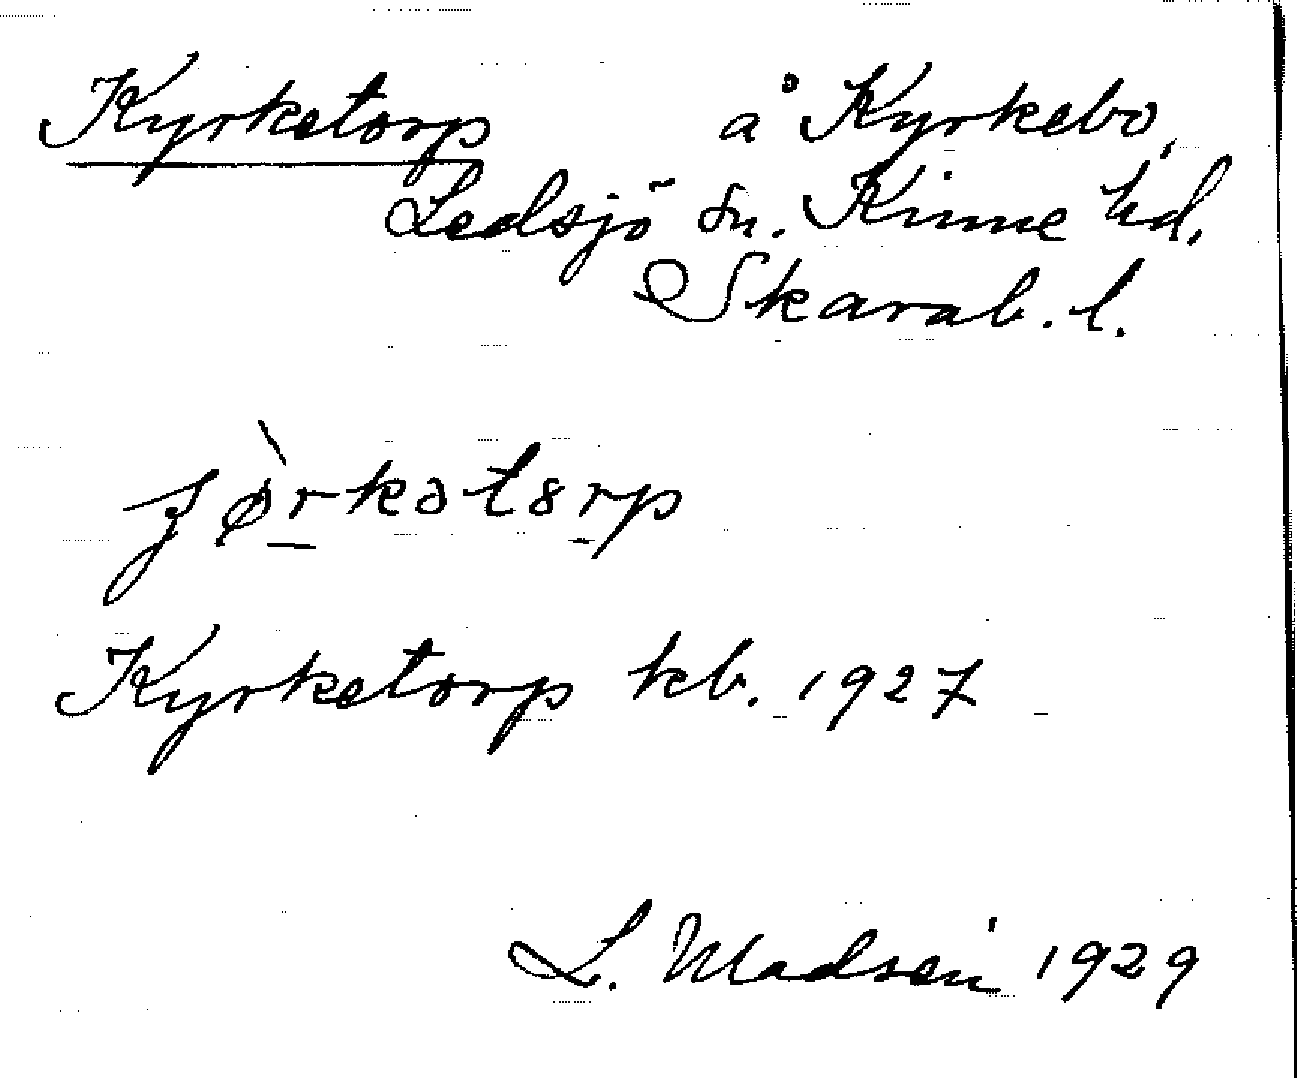 Kyrketorp å Kyrkebo,
Ledsjö sn. Kinne hd,
Skarab. l.
Kyrketorp kb. 1927
L. Madsén 1929